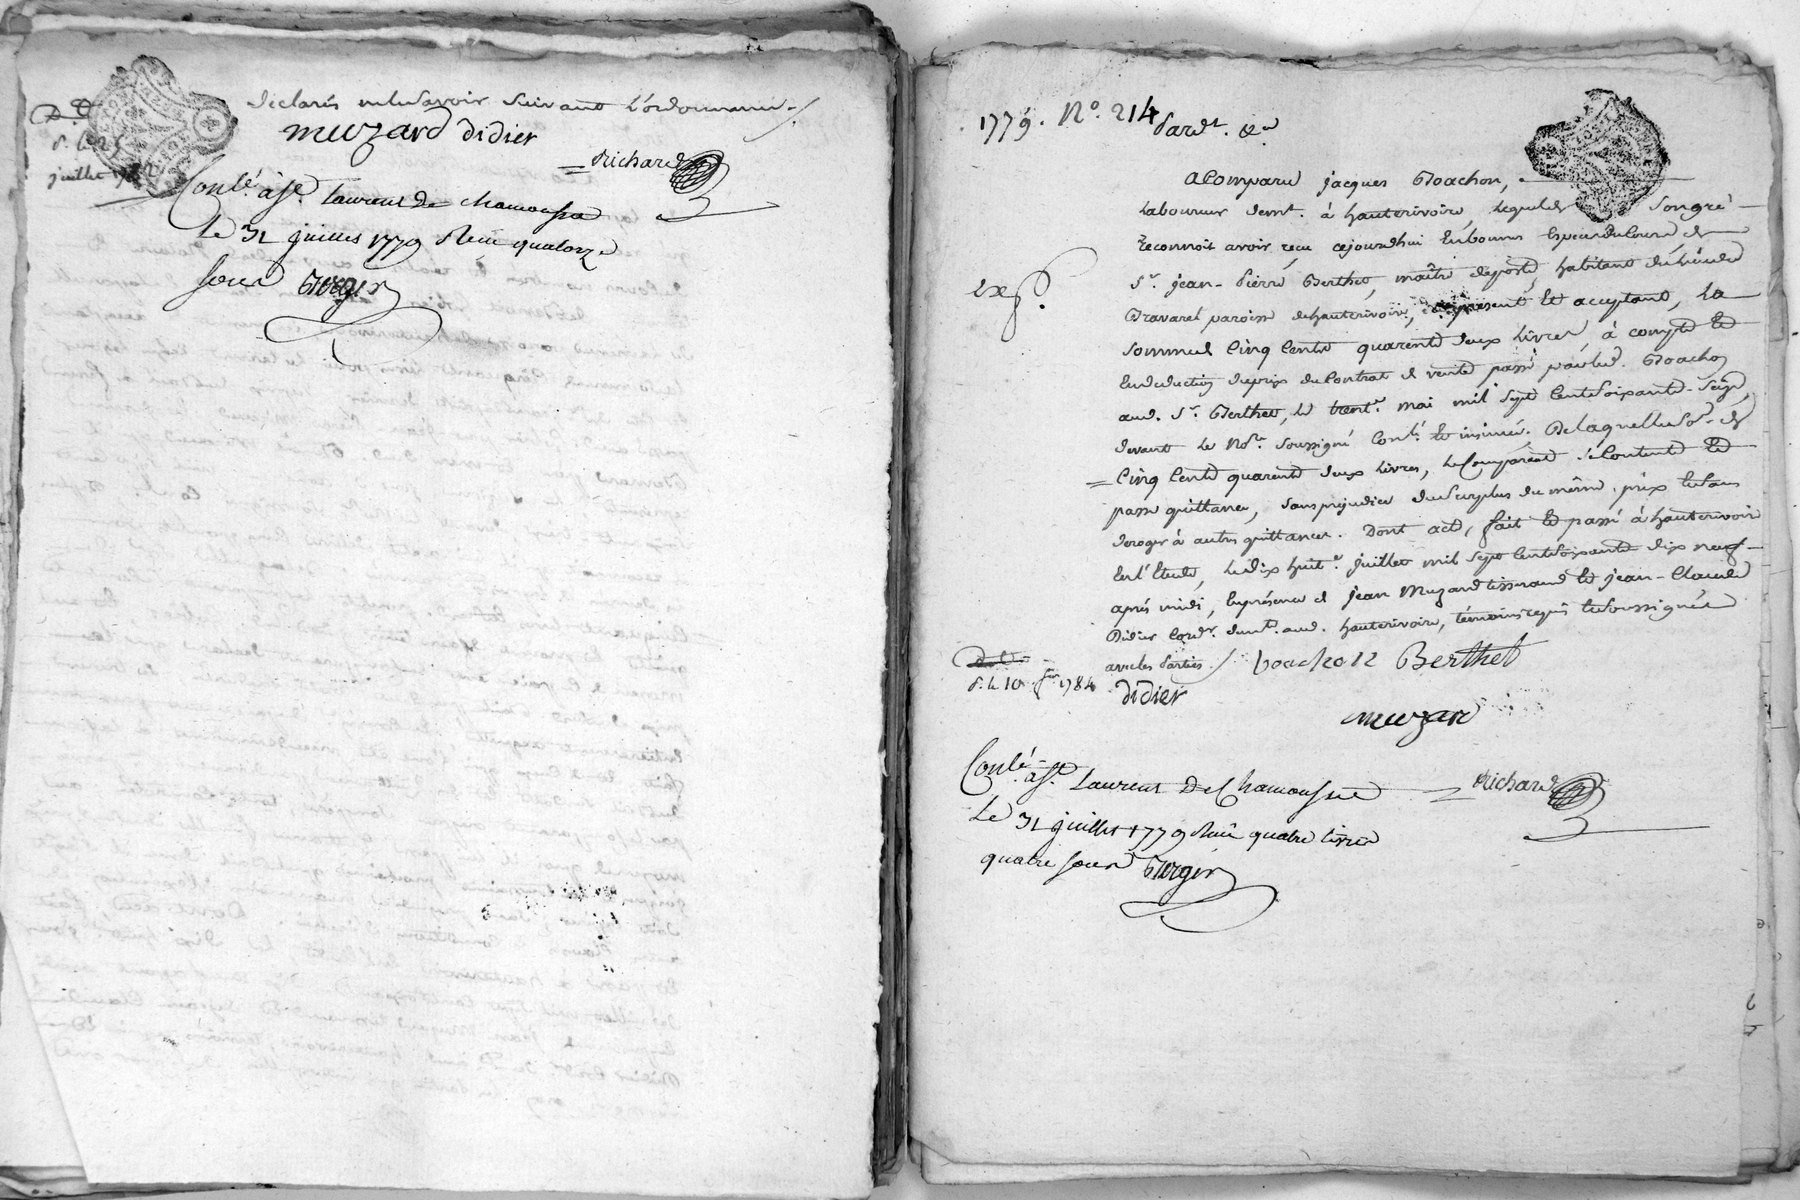 déclarés ne le savoir suivant l'ordonnance /.
D. E.
d. le 25
juillet
muzard didier
Richard
Conlé. à St. Laurent de chamousset
le 31 juillet 1779 Reçu quatorze
sous Berger
1779. N°. 214
Pardt. &a
a Comparu jacques Boachon,
Laboureur demt. à hauterivoire, lequel de son gré
reconnoit avoir reçu cejourdhui en bonnes Especes du Cours de
Sr. jean-Pierre Berthet, maître de poste, habitant du lieu de
Bravaret paroisse de hauterivoire, présent et acceptant, La
Exp.
somme de Cinq Cents quarente deux livres, à compte et
en déduction du prix du Contrat de vente passé par led. Boachon
aud. Sr. Berthet, le trente. mai mil sept Cent soixante-seize,
devant le Nore. soussigné Conlé. et insinué. De laquelle so.e de
Cinq Cents quarente deux livres, le Comparant se Contente et
passe quittance, sans préjudice du surplus du même prix et sans
deroger à autres quittances. Dont acte, fait et passé à hauterivoire
en l'Etude, le dix huite. juillet mil sept Cent soixante dix neuf
après midi, en présence de jean Muzard tisserand et jean-Claude
Didier cordr. demts. aud. hauterivoire, témoins requis et soussignés
avec les Parties. / boachon Berthet
d. le 10 1784
didier
muzard
Conlé. à St. Laurent de Chamousset
Richard
Le 31 juillet 1779 Reçu quatre livres
quatre sous Berger